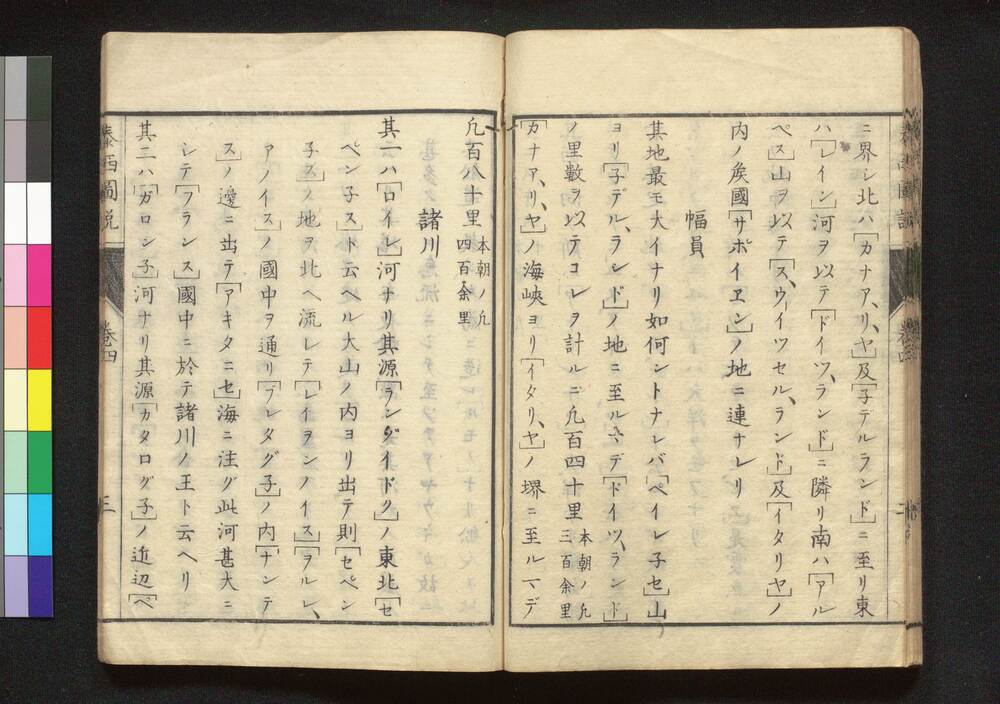 ニ界シ北ハ「カナアリヤ」及「子デルランド」ニ至リ東
ハ「レイン」河ヲ以テ「ドイツランド」ニ隣リ南ハ「アル
ペス」山ヲ以テ「スウイツセルランド」及「イタリヤ」ノ
内ノ矦國「サボイヱン」ノ地ニ連ナレリ
幅員
其地最モ大イナリ如何ントナレバ「ペイレ子セ」山
ヨリ「子デルランド」ノ地ニ至ルマデ「ドイツランド」
ノ里數ヲ以テコレヲ計ルニ凢百四十里
本朝ノ凢
三百余里
「カナアリヤ」ノ海峽ヨリ「イタリヤ」ノ堺ニ至ルマデ
凢百八十里
本朝ノ凢
四百余里
諸川
其一ハ「ロイレ」河ナリ其源「ランダイドク」ノ東北「セ
ペン子ス」ト云ヘル大山ノ内ヨリ出テ則「セペン
子ス」ノ地ヲ北ヘ流レテ「レイヲンノイス」「ヲルレ
アノイス」ノ國中ヲ通リ「ブレタグ子」ノ内「ナンテ
ス」ノ邊ニ出テ「アキタニセ」海ニ注グ此河甚大ニ
シテ「フランス」國中ニ於テ諸川ノ王ト云ヘリ
其二ハ「ガロン子」河ナリ其源「カタログ子」ノ近辺「ペ
泰西圖説
卷四
三